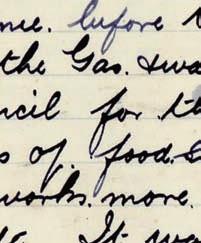 nce. before t
the Gas. & wa
ncil for th
s of. food. &
works. more.
It wa